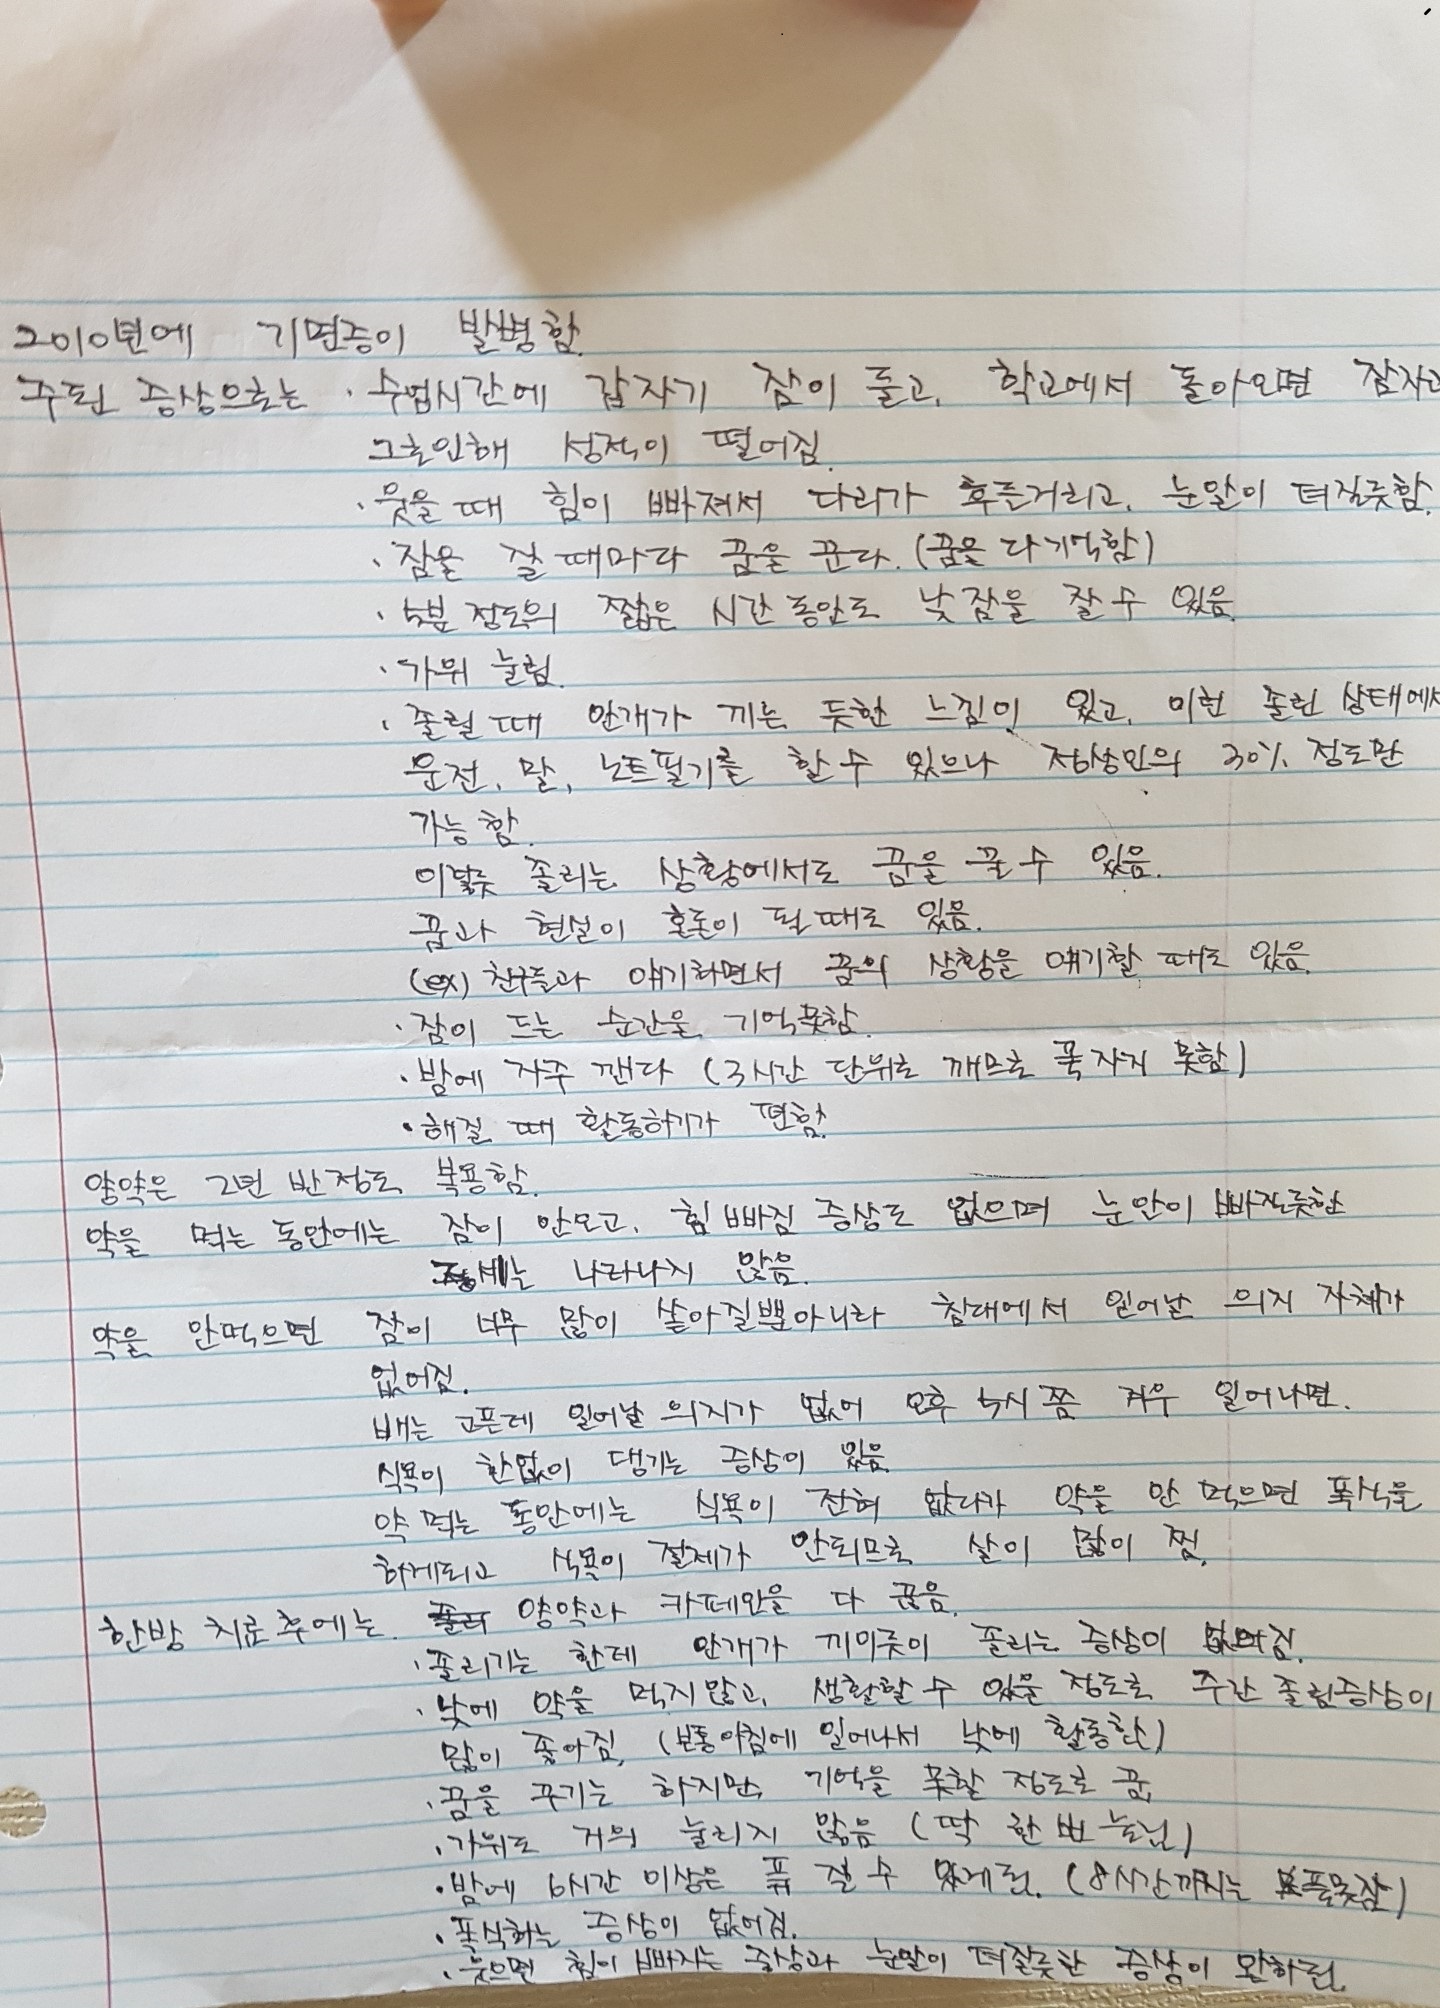 2010년에 기면증이 발병함.
주된 증상으로는 · 수업시간에 갑자기 잠이 들고, 학교에서 돌아오면 잠자고
그로인해 성적이 떨어짐.
· 웃을 때 힘이 빠져서 다리가 후들거리고, 눈알이 터질듯함.
· 잠을 잘 때마다 꿈을 꾼다. (꿈을 다 기억함)
· 5분 정도의 짧은 시간 동안도 낮잠을 잘 수 있음.
· 가위 눌림.
· 졸릴 때 안개가 끼는 듯한 느낌이 있고, 이런 졸린 상태에서
운전, 말, 노트필기를 할 수 있으나 정상인의 30% 정도만
가능함.
이렇듯 졸리는 상황에서도 꿈을 꿀 수 있음.
꿈과 현실이 혼돈이 될 때도 있음.
(ex) 친구들과 얘기하면서 꿈의 상황을 얘기할 때도 있음.
· 잠이 드는 순간을 기억못함.
· 밤에 자주 깬다 (3시간 단위로 깨므로 푹 자지 못함)
· 해질 때 활동하기가 편함.
양약은 2년 반 정도 복용함.
약을 먹는 동안에는 잠이 안오고, 힘 빠짐 증상도 없으며 눈안이 빠질듯한
나타나지 않음.
약을 안먹으면 잠이 너무 많이 쏟아질뿐아니라 침대에서 일어날 의지 자체가
없어짐.
배는 고픈데 일어날 의지가 없어 오후 5시쯤 겨우 일어나면.
식욕이 한없이 댕기는 증상이 있음.
약 먹는 동안에는 식욕이 전혀 없다가 약을 안 먹으면 폭식을
하게되고 식욕이 절제가 안되므로 살이 많이 찜.
한방 치료 후에는. 양약과 카페인을 다 끊음.
· 졸리기는 한데 안개가 끼이듯이 졸리는 증상이 없어짐.
· 낮에 약을 먹지않고, 생활할 수 있을 정도로 주간 졸림증상이
많이 좋아짐. (보통아침에 일어나서 낮에 활동함)
· 꿈을 꾸기는 하지만, 기억을 못할 정도로 꿈.
· 가위도 거의 눌리지 않음 (딱 한 번 눌림)
· 밤에 6시간 이상은 푹 잘 수 있게됨. (8시간까지는 푹못잠)
· 폭식하는 증상이 없어짐.
· 웃으면 힘이 빠지는 증상과 눈알이 터질듯한 증상이 완화됨.